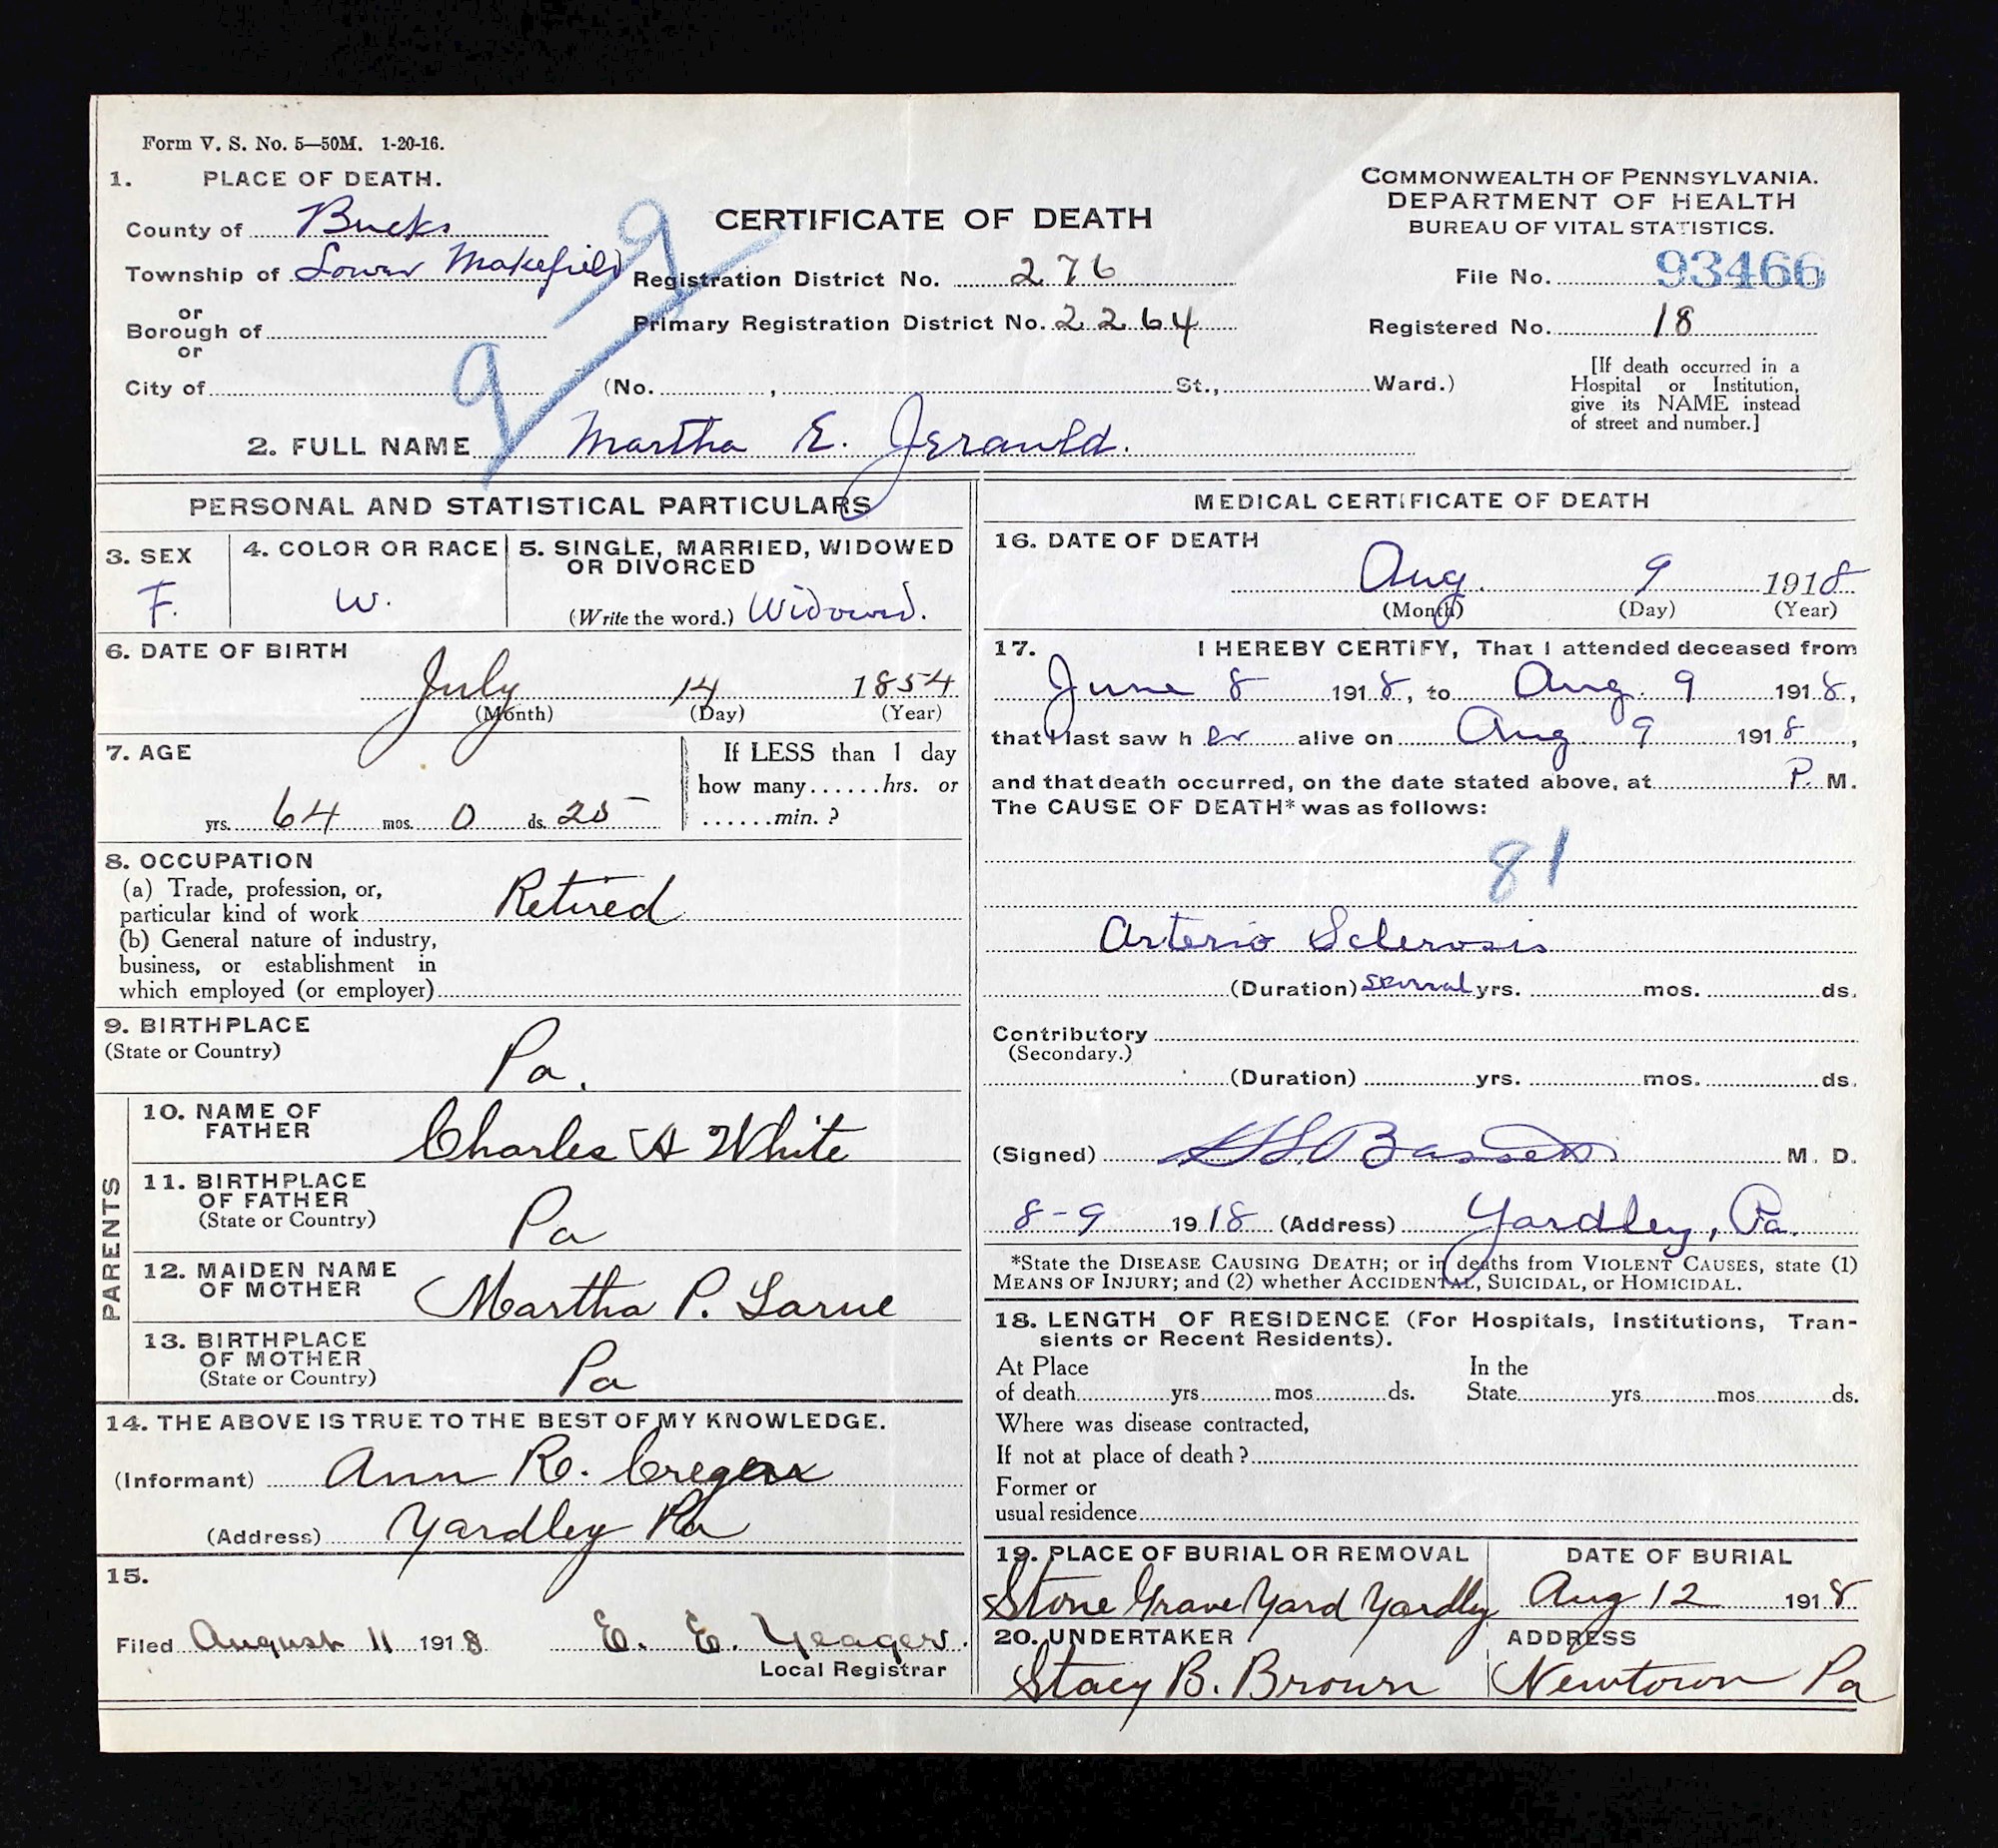 Form V. S. No. 5—50M. 1-20-16.
1. PLACE OF DEATH.
County of Bucks
Township of Lower Makefield
or
Borough of
or
City of
CERTIFICATE OF DEATH
Registration District No. 276
Primary Registration District No. 2264
(No. , St., Ward.)
COMMONWEALTH OF PENNSYLVANIA.
DEPARTMENT OF HEALTH
BUREAU OF VITAL STATISTICS.
File No. 93466
Registered No. 18
[If death occurred in a
Hospital or Institution,
give its NAME instead
of street and number.]
9
9
2. FULL NAME Martha E. Jerauld.
PERSONAL AND STATISTICAL PARTICULARS
3. SEX
F.
4. COLOR OR RACE
W.
5. SINGLE, MARRIED, WIDOWED
OR DIVORCED
(Write the word.) Widowed.
6. DATE OF BIRTH
July 14 1854
(Month) (Day) (Year)
7. AGE
yrs. 64 mos. 0 ds. 25
If LESS than 1 day
how many......hrs. or
......min. ?
8. OCCUPATION
(a) Trade, profession, or,
particular kind of work Retired
(b) General nature of industry,
business, or establishment in
which employed (or employer)
9. BIRTHPLACE
(State or Country)
Pa.
PARENTS
10. NAME OF
FATHER
Charles H White
11. BIRTHPLACE
OF FATHER
(State or Country)
Pa
12. MAIDEN NAME
OF MOTHER
Martha P. Larue
13. BIRTHPLACE
OF MOTHER
(State or Country)
Pa
14. THE ABOVE IS TRUE TO THE BEST OF MY KNOWLEDGE.
(Informant) Ann R.
(Address) Yardley Pa
15.
Filed August 11 1918 E. E. Yeager.
Local Registrar
MEDICAL CERTIFICATE OF DEATH
16. DATE OF DEATH
Aug. 9 1918
(Month) (Day) (Year)
17. I HEREBY CERTIFY, That I attended deceased from
June 8 1918, to Aug. 9 1918,
that I last saw h er alive on Aug 9 1918,
and that death occurred, on the date stated above, at P. M.
The CAUSE OF DEATH* was as follows:
81
Arterio Sclerosis
(Duration) several yrs. mos. ds.
Contributory
(Secondary.)
(Duration) yrs. mos. ds.
(Signed) Bassett M. D.
8-9 1918 (Address) Yardley, Pa.
*State the DISEASE CAUSING DEATH; or in deaths from VIOLENT CAUSES, state (1)
MEANS OF INJURY; and (2) whether ACCIDENTAL, SUICIDAL, or HOMICIDAL.
18. LENGTH OF RESIDENCE (For Hospitals, Institutions, Tran-
sients or Recent Residents).
At Place In the
of death yrs mos ds. State yrs mos ds.
Where was disease contracted,
If not at place of death ?
Former or
usual residence
19. PLACE OF BURIAL OR REMOVAL
Stone Grave Yard Yardly
DATE OF BURIAL
Aug 12 1918
20. UNDERTAKER
Stacy B. Brown
ADDRESS
Newtown Pa